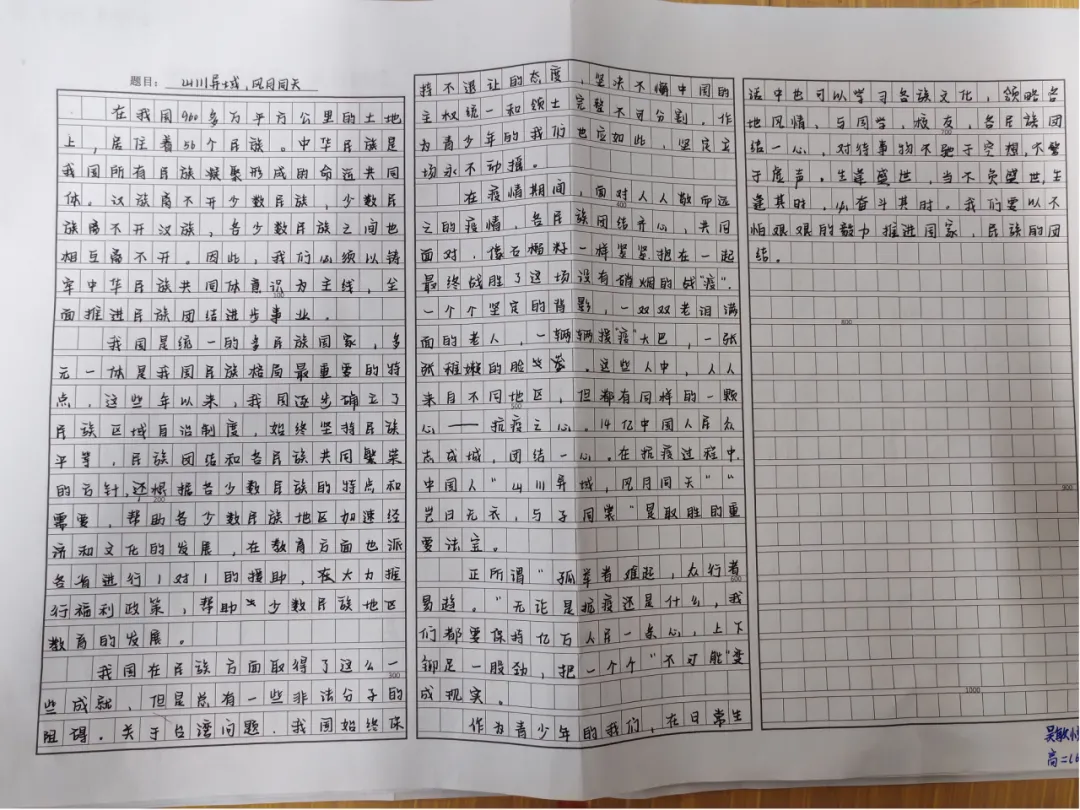 题目：山川异域，风月同天
在我国960多万平方公里的土地
上，居住着56个民族。中华民族是
我国所有民族凝聚形成的命运共同
体。汉族离不开少数民族，少数民
族离不开汉族，各少数民族之间也
相互离不开。因此，我们必须以铸
牢中华民族共同体意识为主线，全
100
面推进民族团结进步事业。
我国是统一的多民族国家，多
元一体是我国民族格局最重要的特
点，这些年以来，我国逐步确立了
民族区域自治制度，始终坚持民族
平等，民族团结和各民族共同繁荣
的方针，还根据各少数民族的特点和
200
需要，帮助各少数民族地区加速经
济和文化的发展，在教育方面也派
各省进行1对1的援助，在大力推
行福利政策，帮助少数民族地区
教育的发展。
我国在民族方面取得了这么一
300
些成就，但是总有一些非法分子的
阻碍。关于台湾问题，我国始终保
持不退让的态度，坚决不惧中国的
主权统一和领土完整不可分割。作
为青少年的我们也应如此，坚定立
场永不动摇。
在疫情期间，面对人人敬而远
400
之的疫情，各民族团结齐心，共同
面对，像石榴籽一样紧紧抱在一起
最终战胜了这场没有硝烟的战"疫".
一个个坚定的背影，一双双老泪满
面的老人，一辆辆援"疫"大巴，一张
张稚嫩的脸笑。这些人中，人人
来自不同地区，但都有同样的一颗
500
心——抗疫之心。14亿中国人民众
志成城，团结一心。在抗疫过程中.
中国人"山川异域，风月同天""
岂曰无衣，与子同裳"是取胜的重
要法宝。
正所谓"孤举者难起，众行者
600
易趋。"无论是抗疫还是什么，我
们都要保持亿万人民一条心，上下
铆足一股劲，把一个个"不可能"变
成现实。
作为青少年的我们，在日常生
活中也可以学习各族文化，领略各
地风情，与同学，校友，各民族团
700
结一心，对待事物不驰于空想，不骛
于虚声。生逢盛世，当不负盛世，生
逢其时，必奋斗其时。我们要以不
怕艰艰的毅力推进国家，民族的团
结。
800
900
1000
吴敏
高二